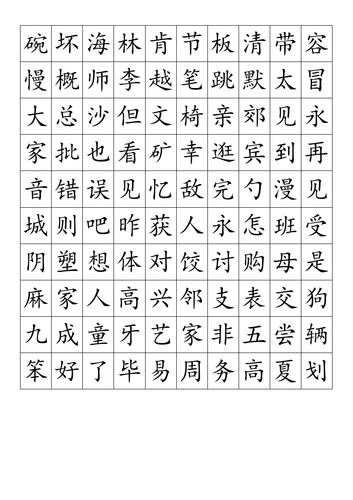 碗坏海林肯节板清带容
慢概师李越笔跳默太冒
大总沙但文椅亲郊见永
家批也看矿幸逛宾到再
音错误见忆敌完勺漫见
城则吧昨获人永怎班受
阴塑想体对饺讨购母是
麻家人高兴邻支表交狗
九成童牙艺家非五尝辆
笨好了毕易周务高夏划